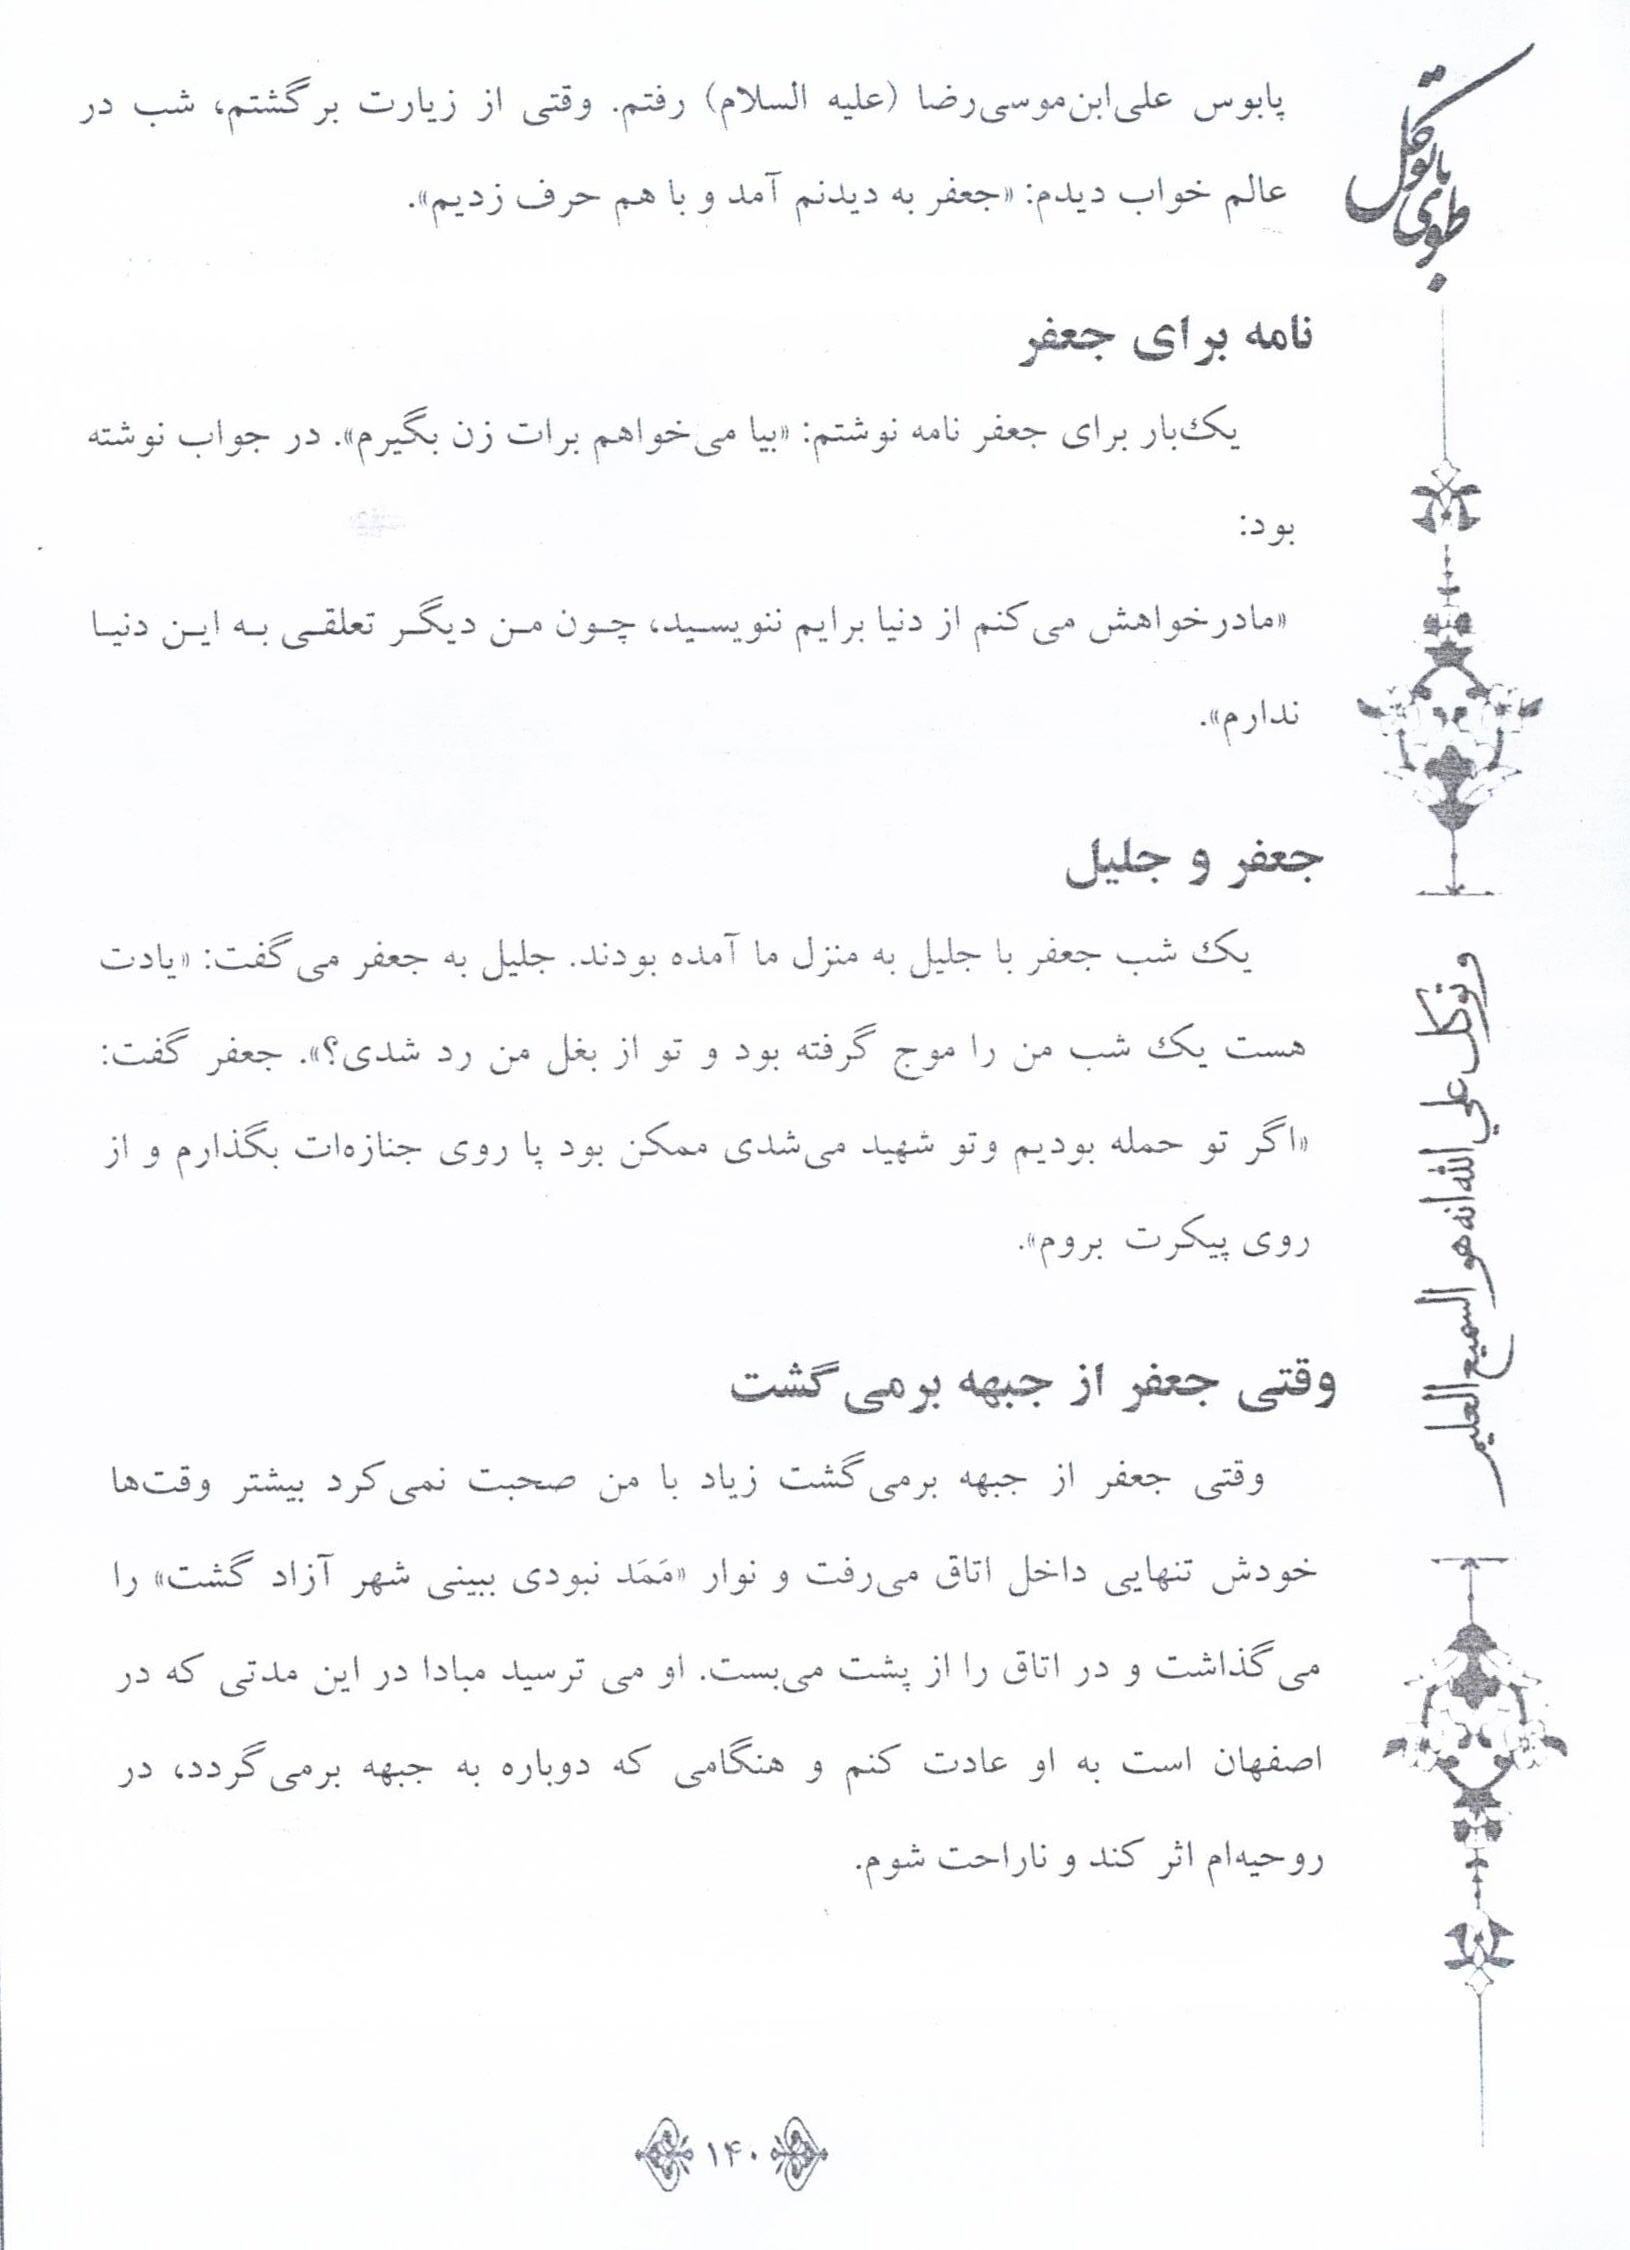 پابوس علی‌ابن‌موسی‌رضا (علیه السلام) رفتم. وقتی از زیارت برگشتم، شب در
عالم خواب دیدم: «جعفر به دیدنم آمد و با هم حرف زدیم».
نامه برای جعفر
یک‌بار برای جعفر نامه نوشتم: «بیا می‌خواهم برات زن بگیرم». در جواب نوشته
بود:
«مادرخواهش می‌کنم از دنیا برایم ننویسید، چون من دیگر تعلقی به این دنیا
ندارم».
جعفر و جلیل
یک شب جعفر با جلیل به منزل ما آمده بودند. جلیل به جعفر می‌گفت: «یادت
هست یک شب من را موج گرفته بود و تو از بغل من رد شدی؟». جعفر گفت:
«اگر تو حمله بودیم وتو شهید می‌شدی ممکن بود پا روی جنازه‌ات بگذارم و از
روی پیکرت بروم».
وقتی جعفر از جبهه برمی‌گشت
وقتی جعفر از جبهه برمی‌گشت زیاد با من صحبت نمی‌کرد بیشتر وقت‌ها
خودش تنهایی داخل اتاق می‌رفت و نوار «مَمَد نبودی ببینی شهر آزاد گشت» را
می‌گذاشت و در اتاق را از پشت می‌بست. او می ترسید مبادا در این مدتی که در
اصفهان است به او عادت کنم و هنگامی که دوباره به جبهه برمی‌گردد، در
روحیه‌ام اثر کند و ناراحت شوم.
طوبای توکل
و توکل علی الله انه هو السمیع العلیم
۱۴۰